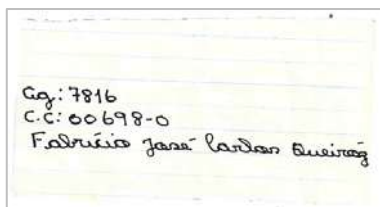 Ag: 7816
C.C: 00698-0
Fabrício José Carlos Queiroz